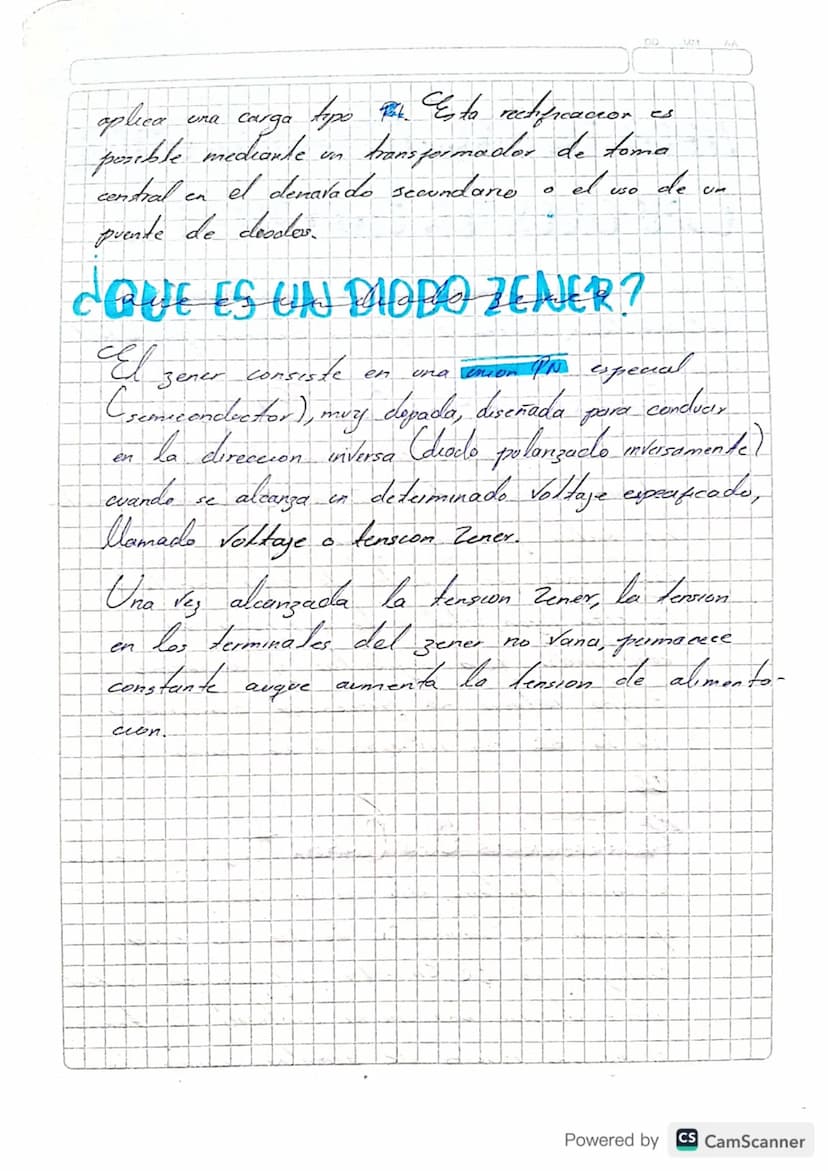 DD MM AA
aplica una carga tipo Esta rectificacion es
posible mediante un transformador de toma
central en el denavado secundario o el uso de un
puente de diodos.
¿QUE ES UN DIODO ZENER?
El zener consiste en una union PN especial
(semiconductor), muy dopada, diseñada para conducir
en la direccion inversa (diodo polarizado inversamente)
cuando se alcanza un determinado voltaje especificado,
llamado voltaje o tension Zener.
Una vez alcanzada la tension Zener, la tension
en los terminales del zener no varia, permanece
constante auque aumenta la tension de alimenta-
cion.
Powered by CS CamScanner